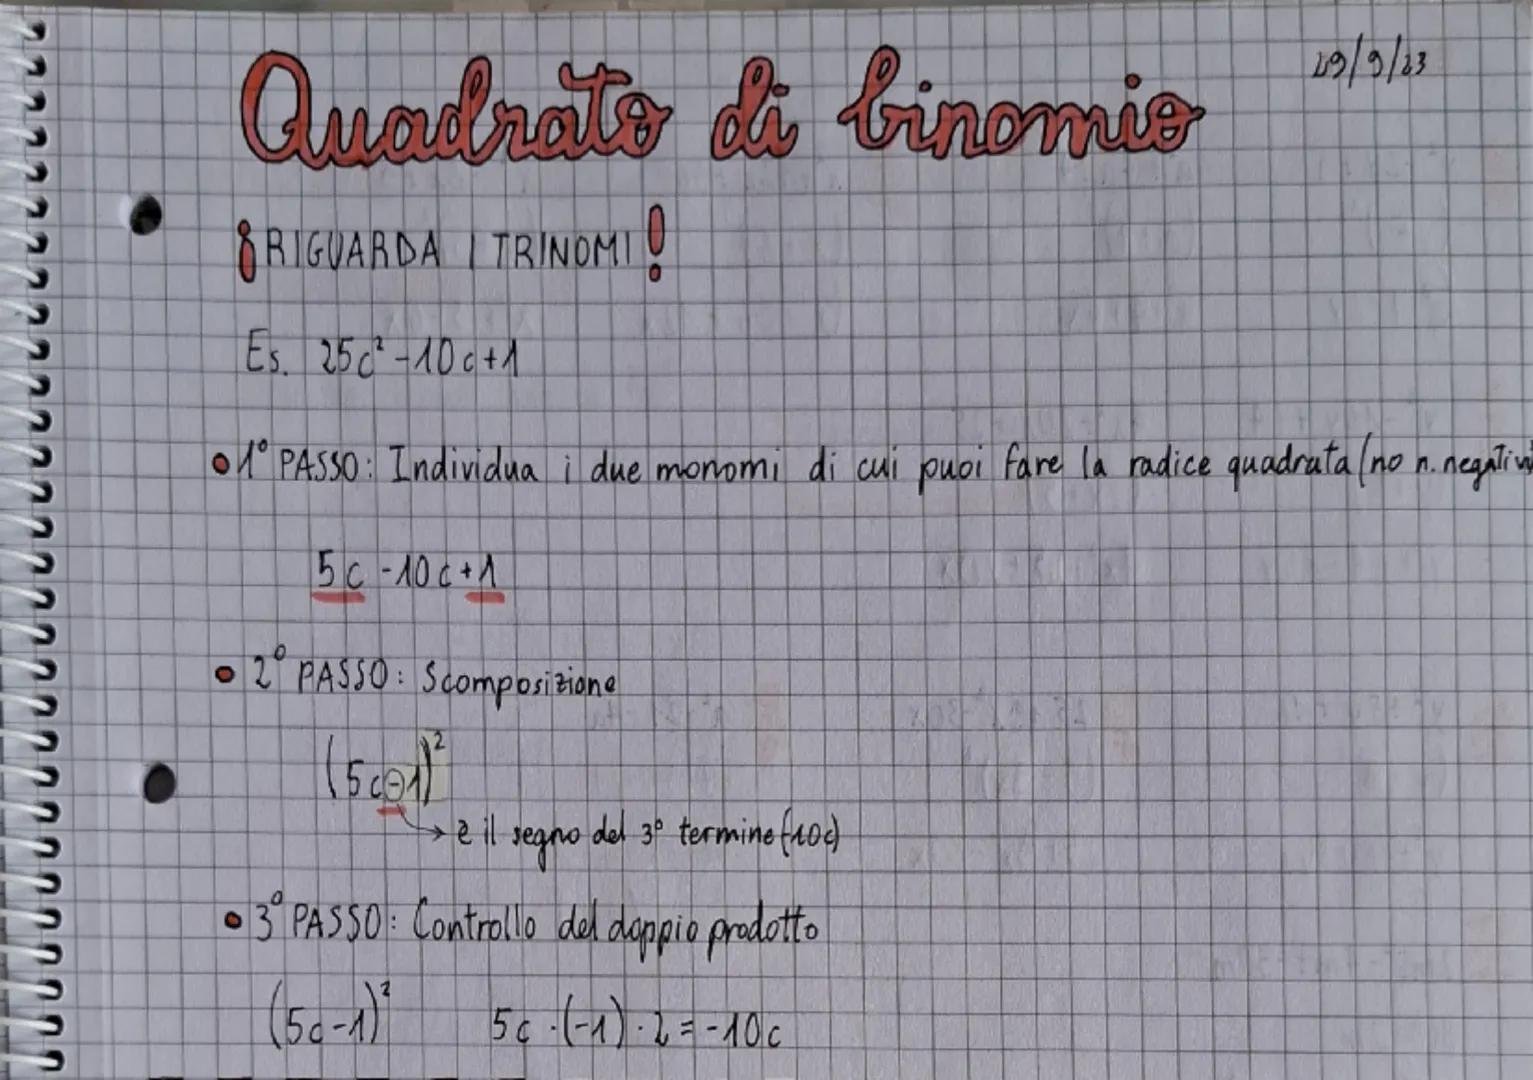 Quadrato di binomio
29/9/23
¡RIGUARDA I TRINOMI!
Es. 25c²-10c+1
•1° PASSO: Individua i due monomi di cui puoi fare la radice quadrata (no n. negativi
5c -10c+1
• 2° PASSO: Scomposizione
(5c-1)²
→ è il segno del 3° termine (-10c)
• 3° PASSO: Controllo del doppio prodotto
(5c-1)² 5c·(-1)·2=-10c